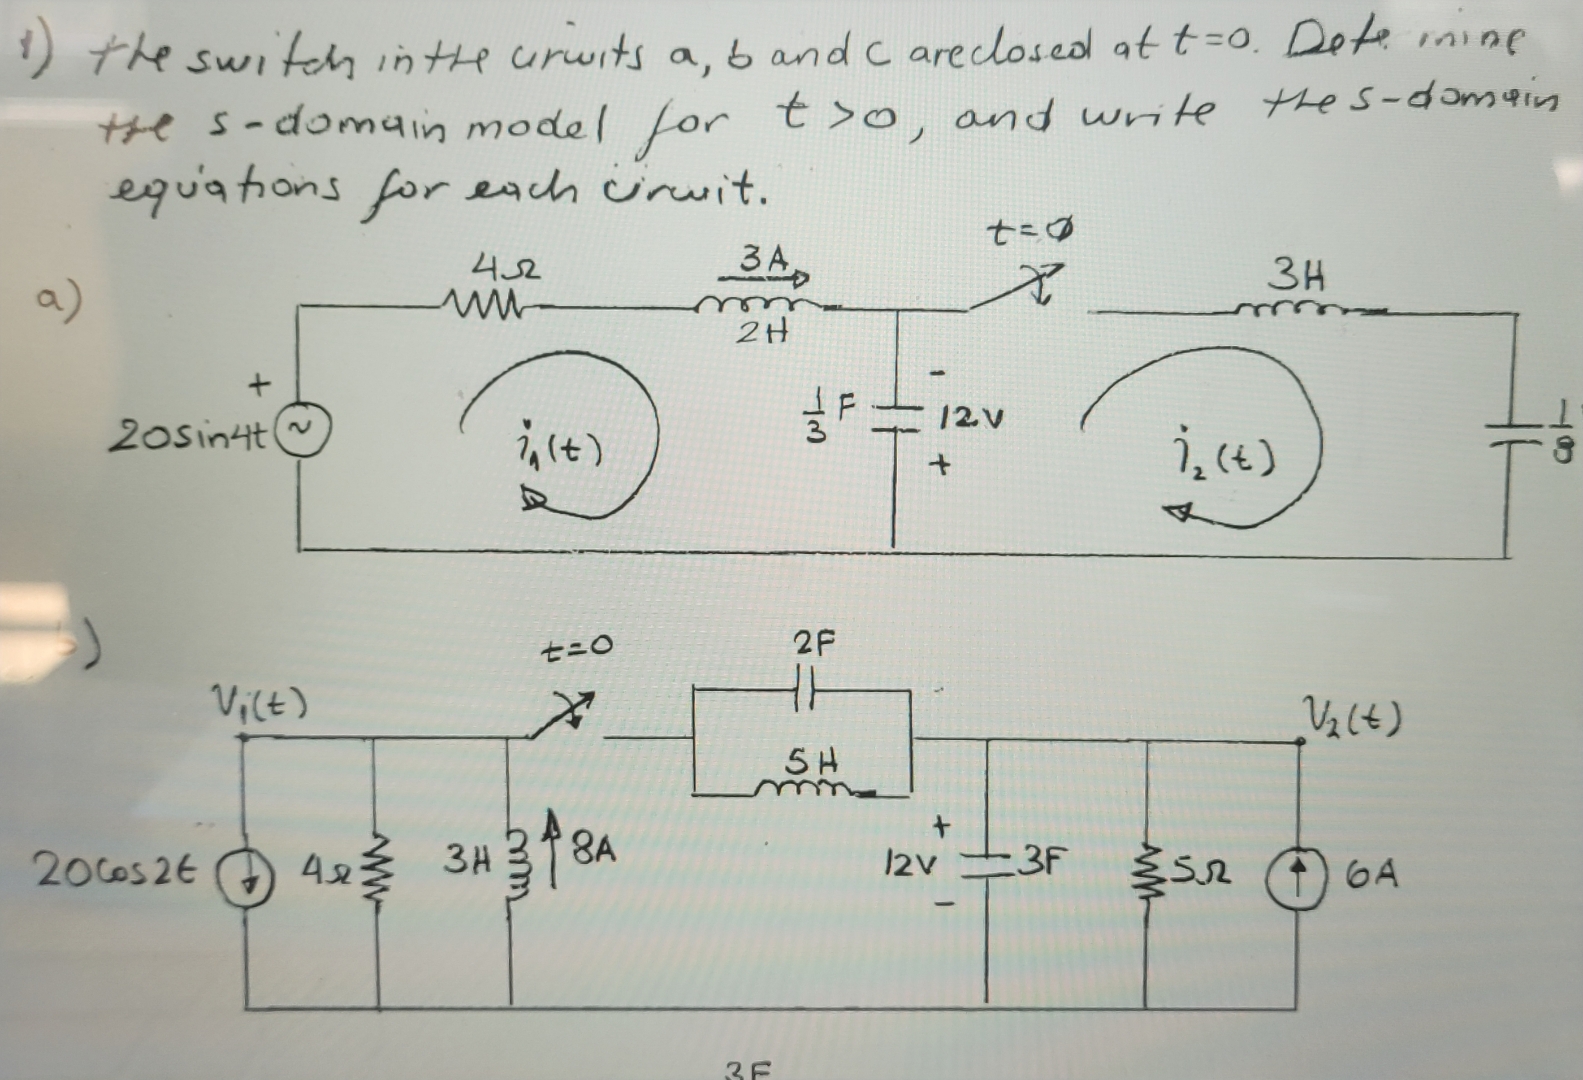 1) the switch in the circuits a, b and c are closed at t=0.
the s-domain model for t>0, and write the s-domain
equations for each circuit.
t=0
a)
4Ω
3A
3H
2H
+
20sin4t
i₁(t)
1/3 F
-
12V
+
i₂(t)
)
t=0
2F
V₁(t)
V₂(t)
5H
20cos2t
4Ω
3H
8A
+
12V
-
3F
5Ω
6A
3F